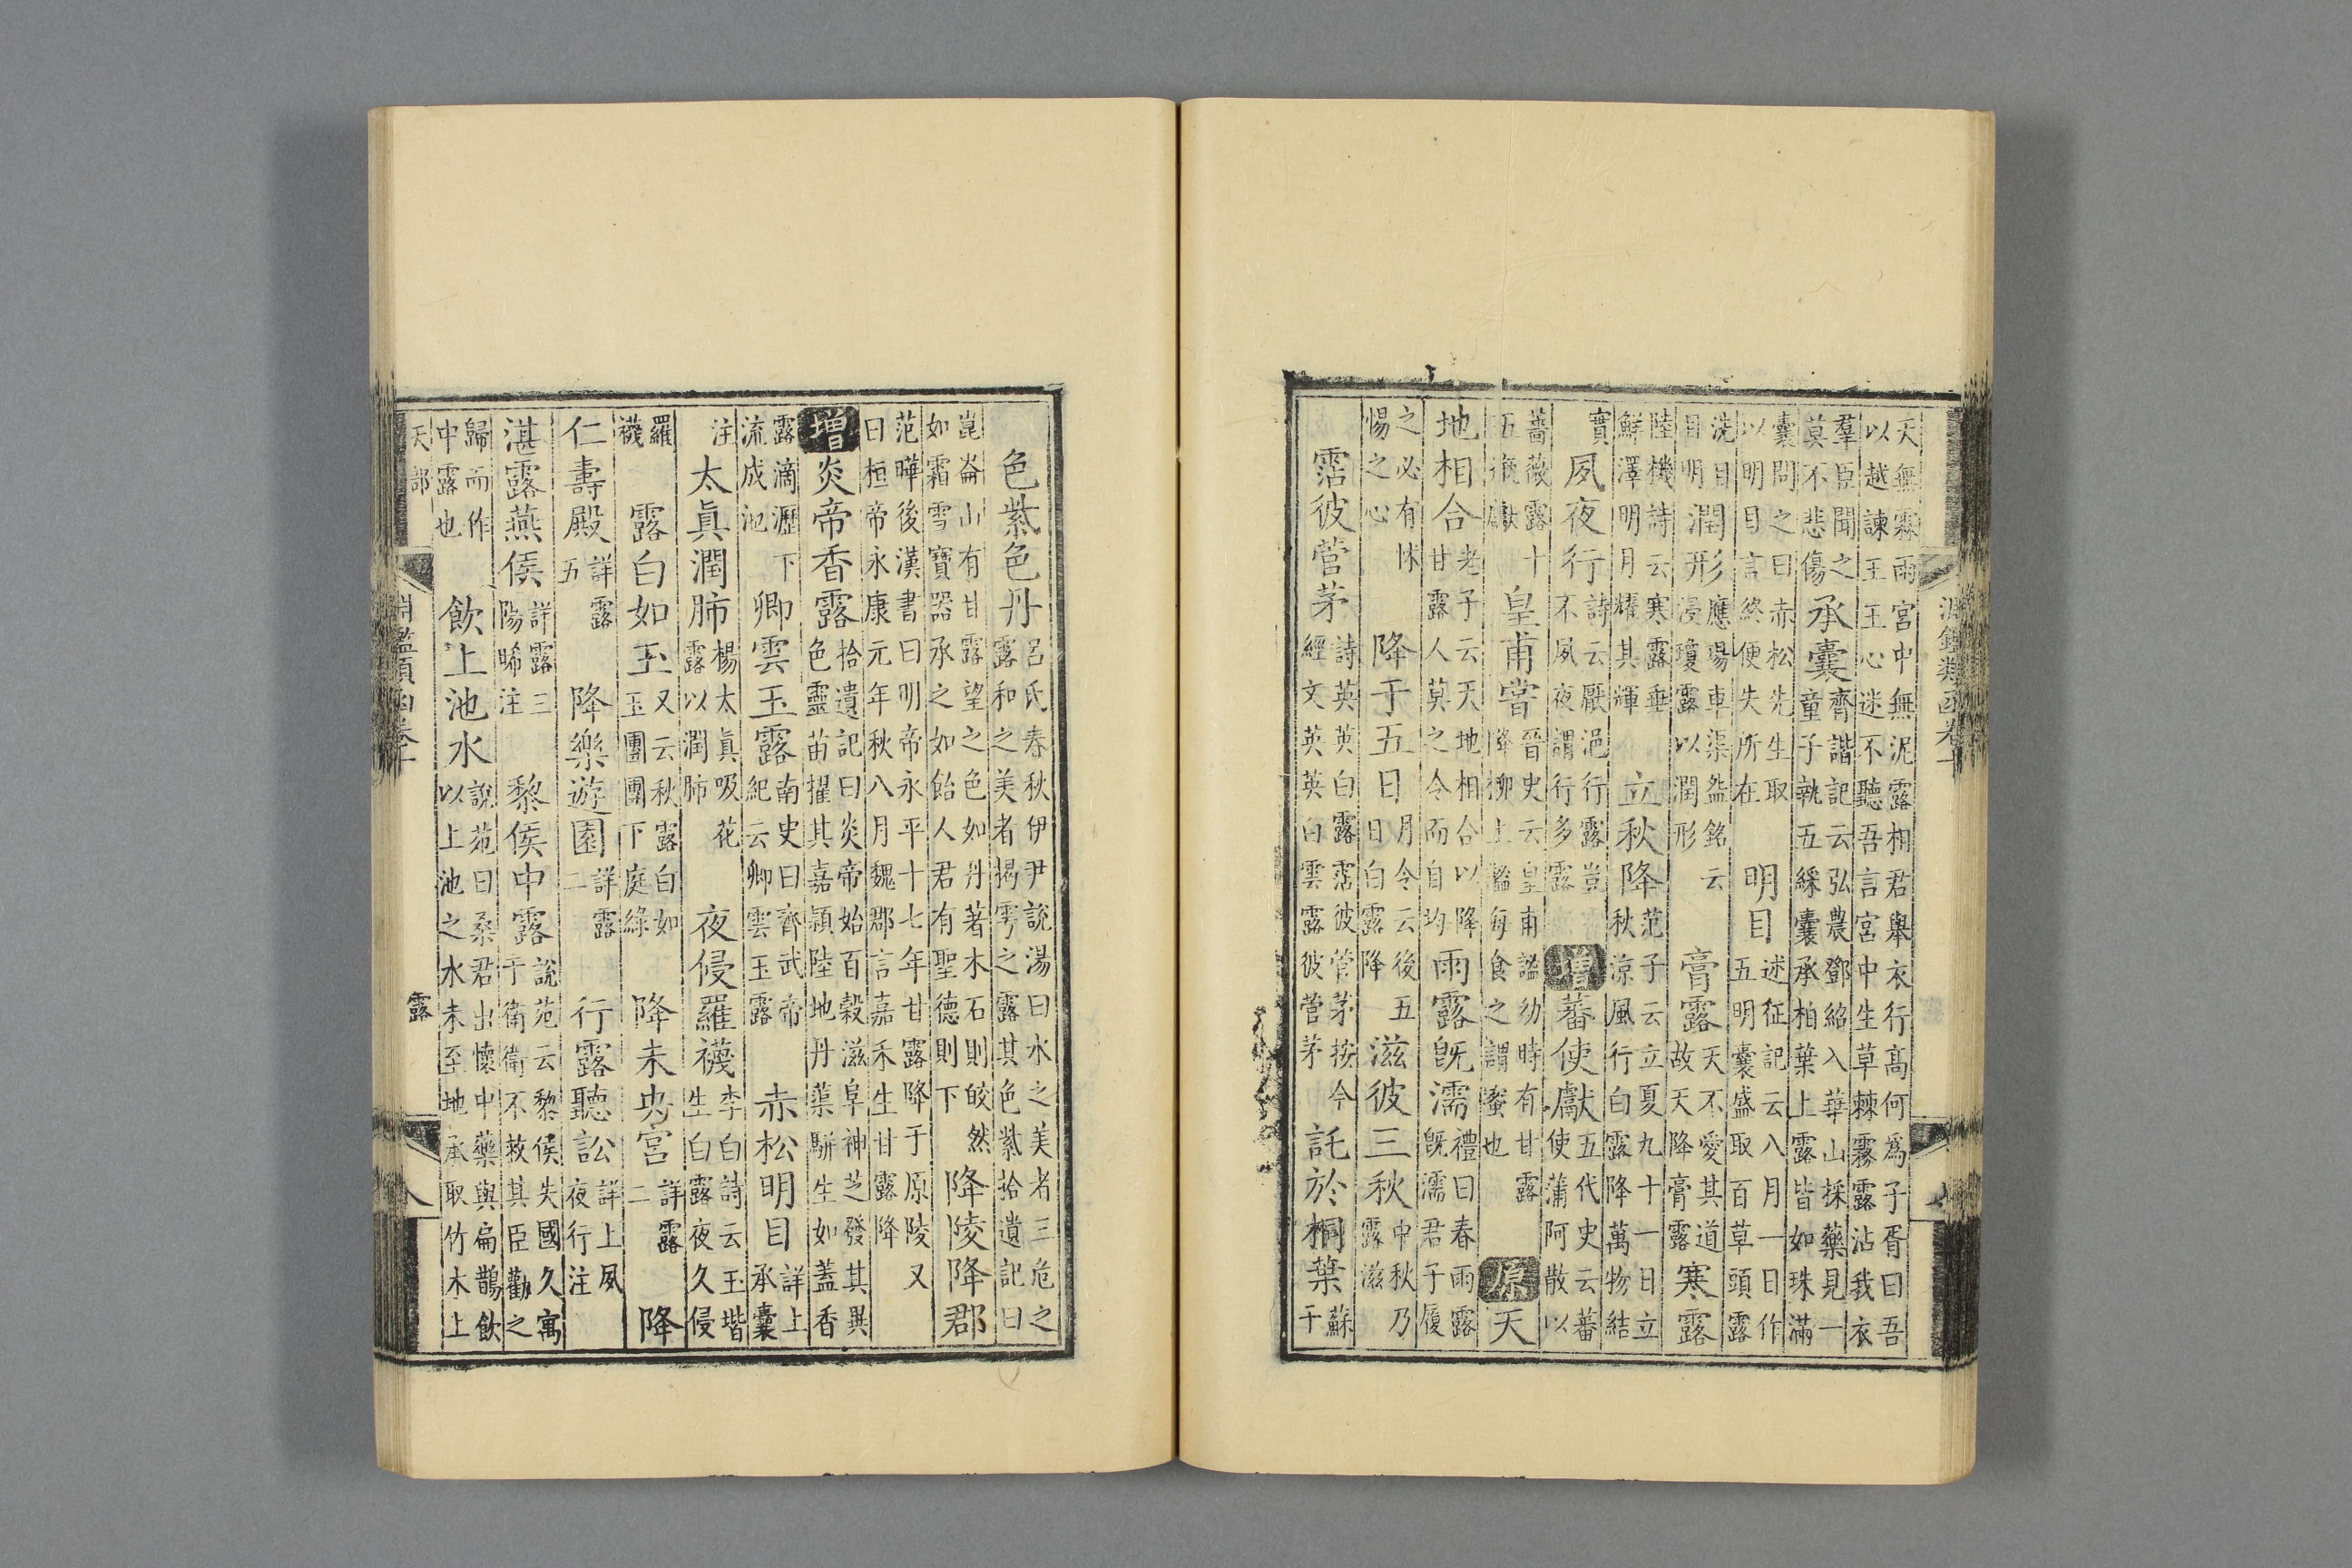 淵鑑類函卷十
天無霖雨宮中無泥露相君舉衣行高何爲子胥曰吾
以越諫王王心迷不聽吾言宮中生草棘霧露沾我衣
羣臣聞之
莫不悲傷
承囊
齊諧記云弘農鄧紹入華山採藥見一
童子執五綵囊承柏葉上露皆如珠滿
囊問之曰赤松先生取
以明目言終便失所在
明目
述征記云八月一日作
五明囊盛取百草頭露
洗目
目明
潤形
應瑒車渠盌銘云
浸瓊露以潤形
膏露
天不愛其道
故天降膏露
寒露
陸機詩云寒露垂
鮮澤明月耀其輝
立秋降
范子云立夏九十一日立
秋涼風行白露降萬物結
實
夙夜行
詩云厭浥行露豈
不夙夜謂行多露
增
蕃使獻
五代史云蕃
使蒲阿散以
薔薇露十
五瓶獻
皇甫嘗
晉史云皇甫謐幼時有甘露
降柳上謐每食之謂蜜也
原
天
地相合
老子云天地相合以降
甘露人莫之令而自均
雨露旣濡
禮曰春雨露
旣濡君子履
之必有怵
惕之心
降于五日
月令云後五
日白露降
滋彼三秋
中秋乃
露滋
霑彼菅茅
詩英英白露霑彼菅茅按今
經文英英白雲露彼菅茅
託於桐葉
蘇
干
色紫色丹
呂氏春秋伊尹說湯曰水之美者三危之
露和之美者揭雩之露其色紫拾遺記曰
崑崙山有甘露望之色如丹著木石則皎然
如霜雪寶器承之如飴人君有聖德則下
降陵降郡
范曄後漢書曰明帝永平十七年甘露降于原陵又
曰桓帝永康元年秋八月魏郡言嘉禾生甘露降
增
炎帝香露
拾遺記曰炎帝始百穀滋阜神芝發其異
色靈苗擢其嘉穎陸地丹蕖駢生如蓋香
露滴瀝下
流成池
卿雲玉露
南史曰齊武帝
紀云卿雲玉露
赤松明目
詳上
承囊
注
太眞潤肺
楊太眞吸花
露以潤肺
夜侵羅襪
李白詩云玉堦
生白露夜久侵
羅
襪
露白如玉
又云秋露白如
玉團團下庭綠
降未央宮
詳露
二
降
仁壽殿
詳露
五
降樂遊園
詳露
二
行露聽訟
詳上夙
夜行注
湛露燕侯
詳露三
陽晞注
黎侯中露
說苑云黎侯失國久寓
于衛衛不救其臣勸之
歸而作
中露也
飲上池水
說苑曰桑君出懷中藥與扁鵲飲
以上池之水未至地承取竹木上
天部
露
淵鑑類函卷十
八